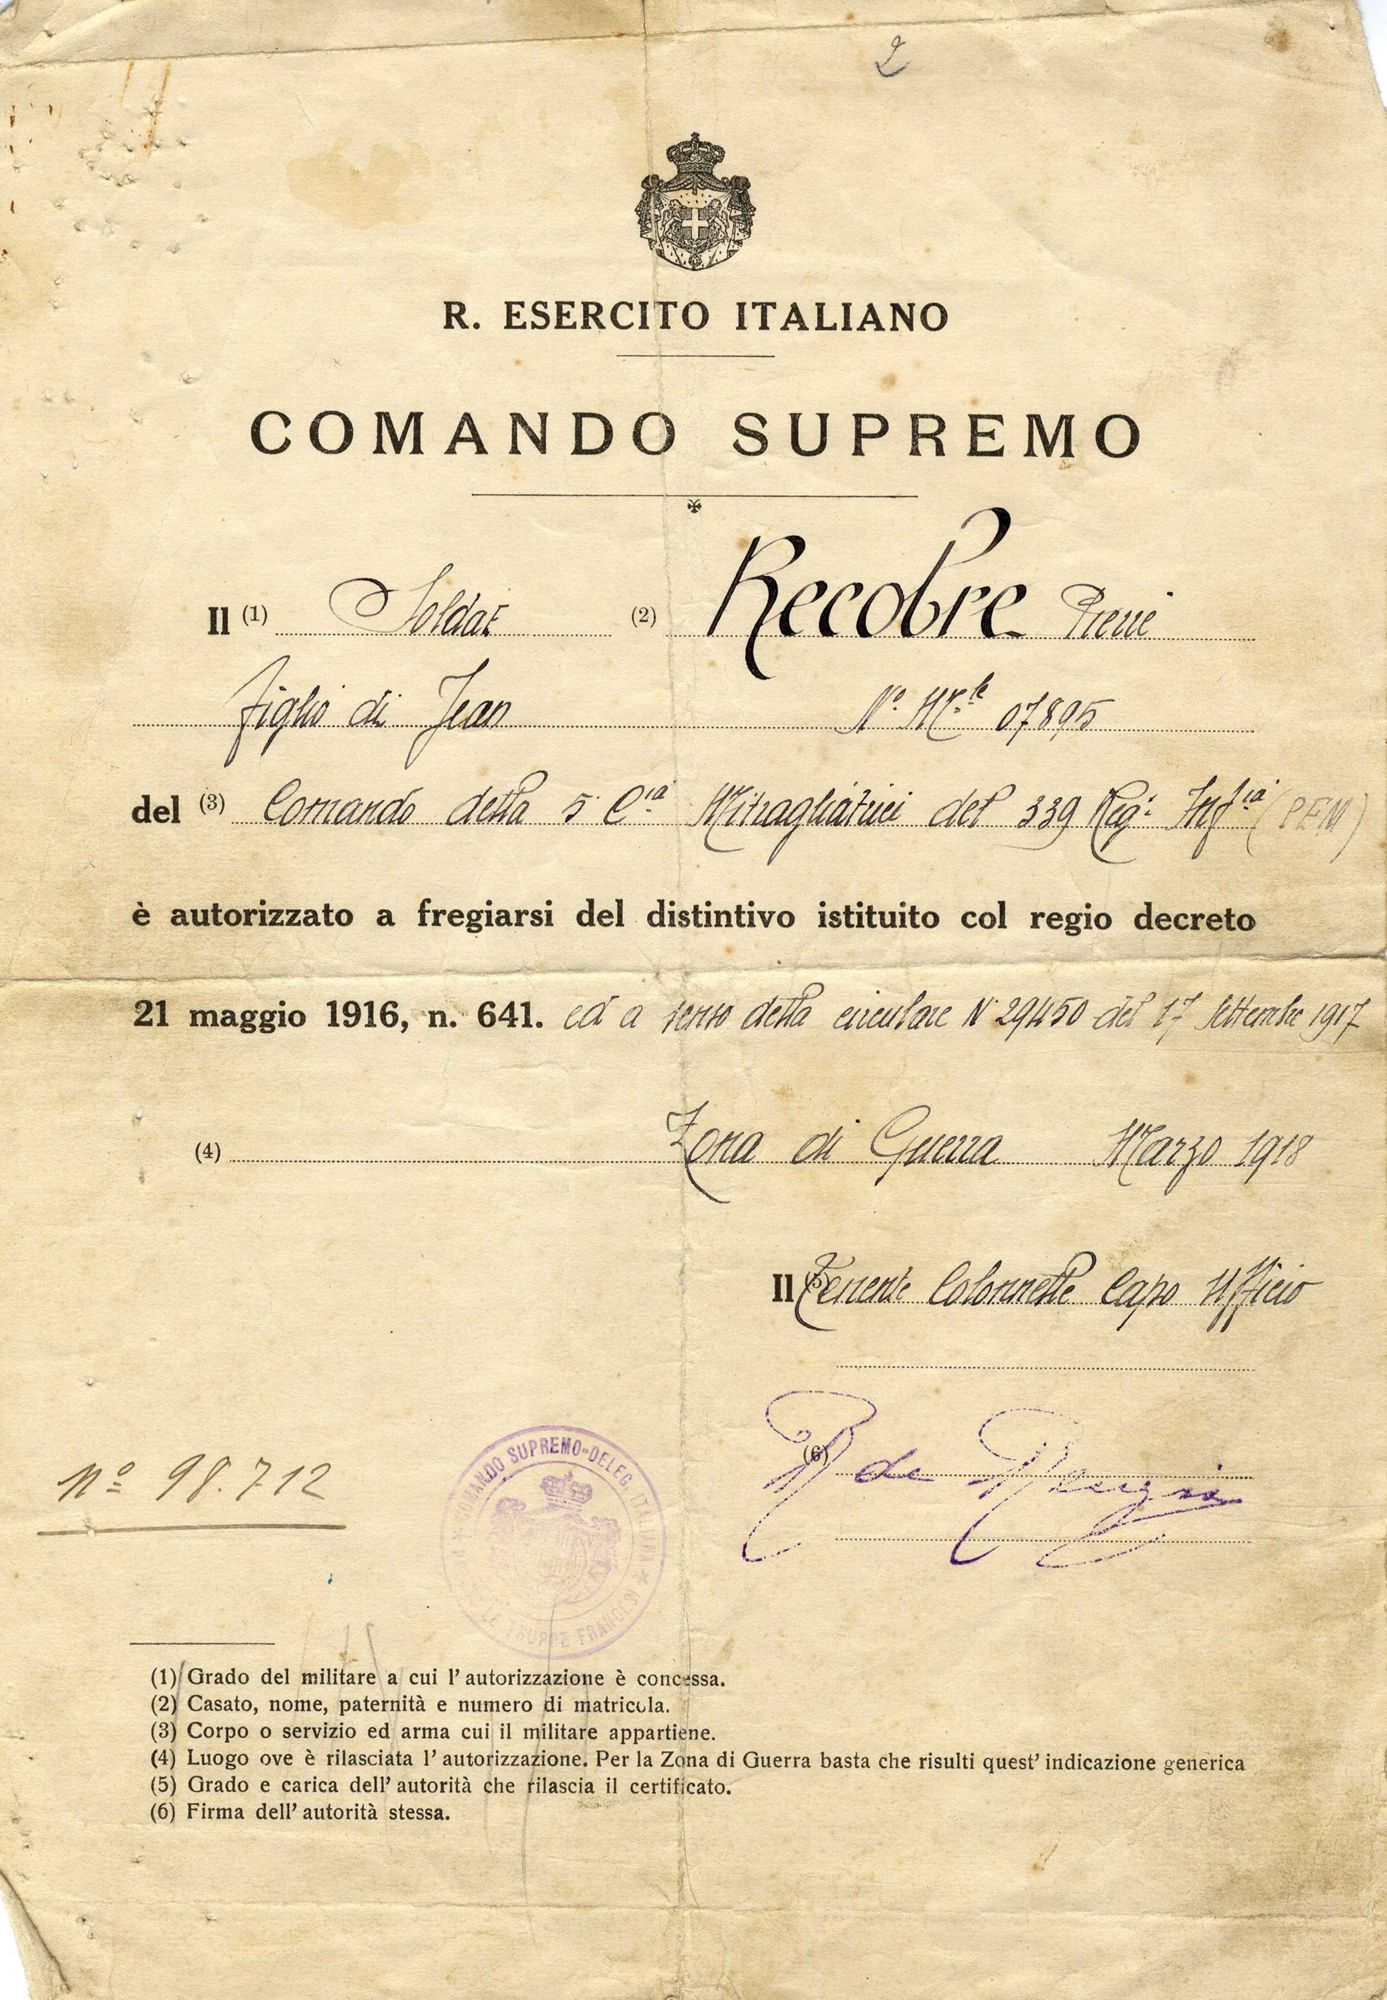 2
R. ESERCITO ITALIANO
COMANDO SUPREMO
Il (1) Soldat (2) Recobre Pierre
figlio di Jean N° Mle 07895
del (3) Comando della 5 Cia Mitragliatrici del 339 Reg: Infia (PEM)
è autorizzato a fregiarsi del distintivo istituito col regio decreto
21 maggio 1916, n. 641. ed a senso della circulare N 29450 del 17 Settembre 1917
(4) Zona di Guerra Marzo 1918
Il (5) Tenente Colonnello Capo Ufficio
(6) de
N° 98.712
COMANDO SUPREMO-DELEG. ITALIANA ★ LE TRUPPE FRANCESI
(1) Grado del militare a cui l'autorizzazione è concessa.
(2) Casato, nome, paternità e numero di matricola.
(3) Corpo o servizio ed arma cui il militare appartiene.
(4) Luogo ove è rilasciata l'autorizzazione. Per la Zona di Guerra basta che risulti quest'indicazione generica
(5) Grado e carica dell'autorità che rilascia il certificato.
(6) Firma dell'autorità stessa.